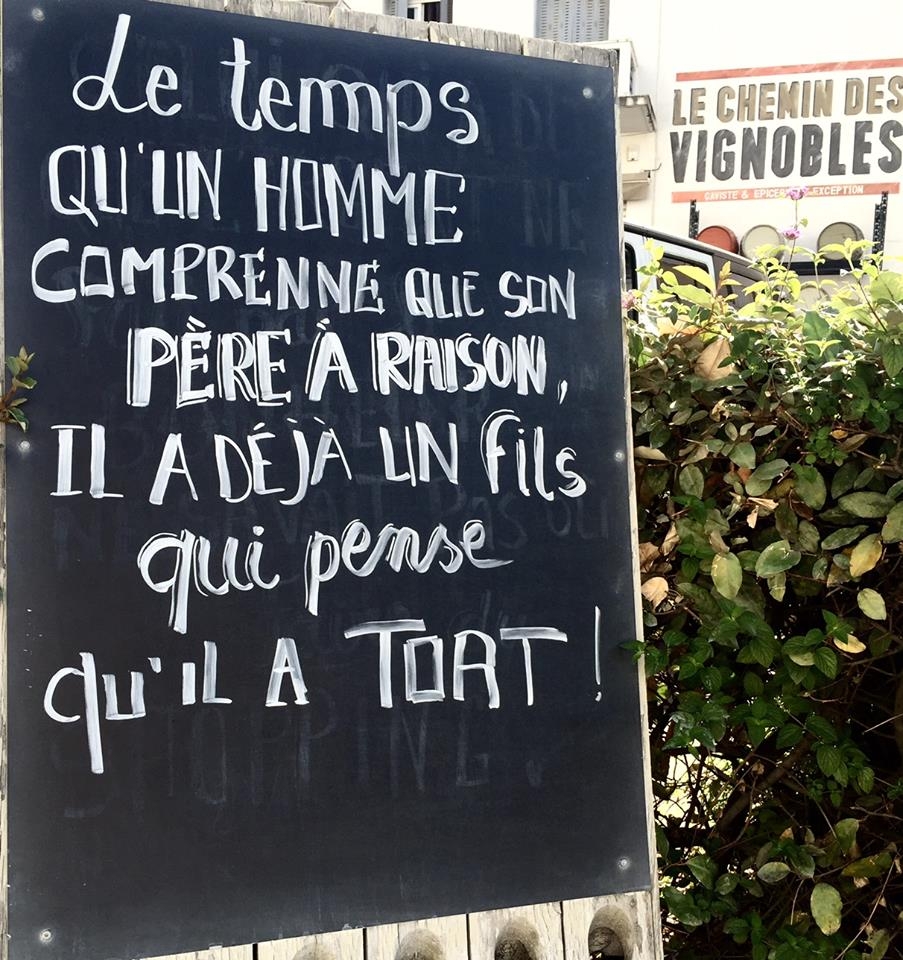 Le temps
QU'UN HOMME
COMPRENNE QUE SON
PÈRE À RAISON,
IL A DÉJÀ UN fils
qui pense
qu'il A TORT !
LE CHEMIN DES
VIGNOBLES
CAVISTE & EPICERIE D'EXCEPTION
SHOPPING